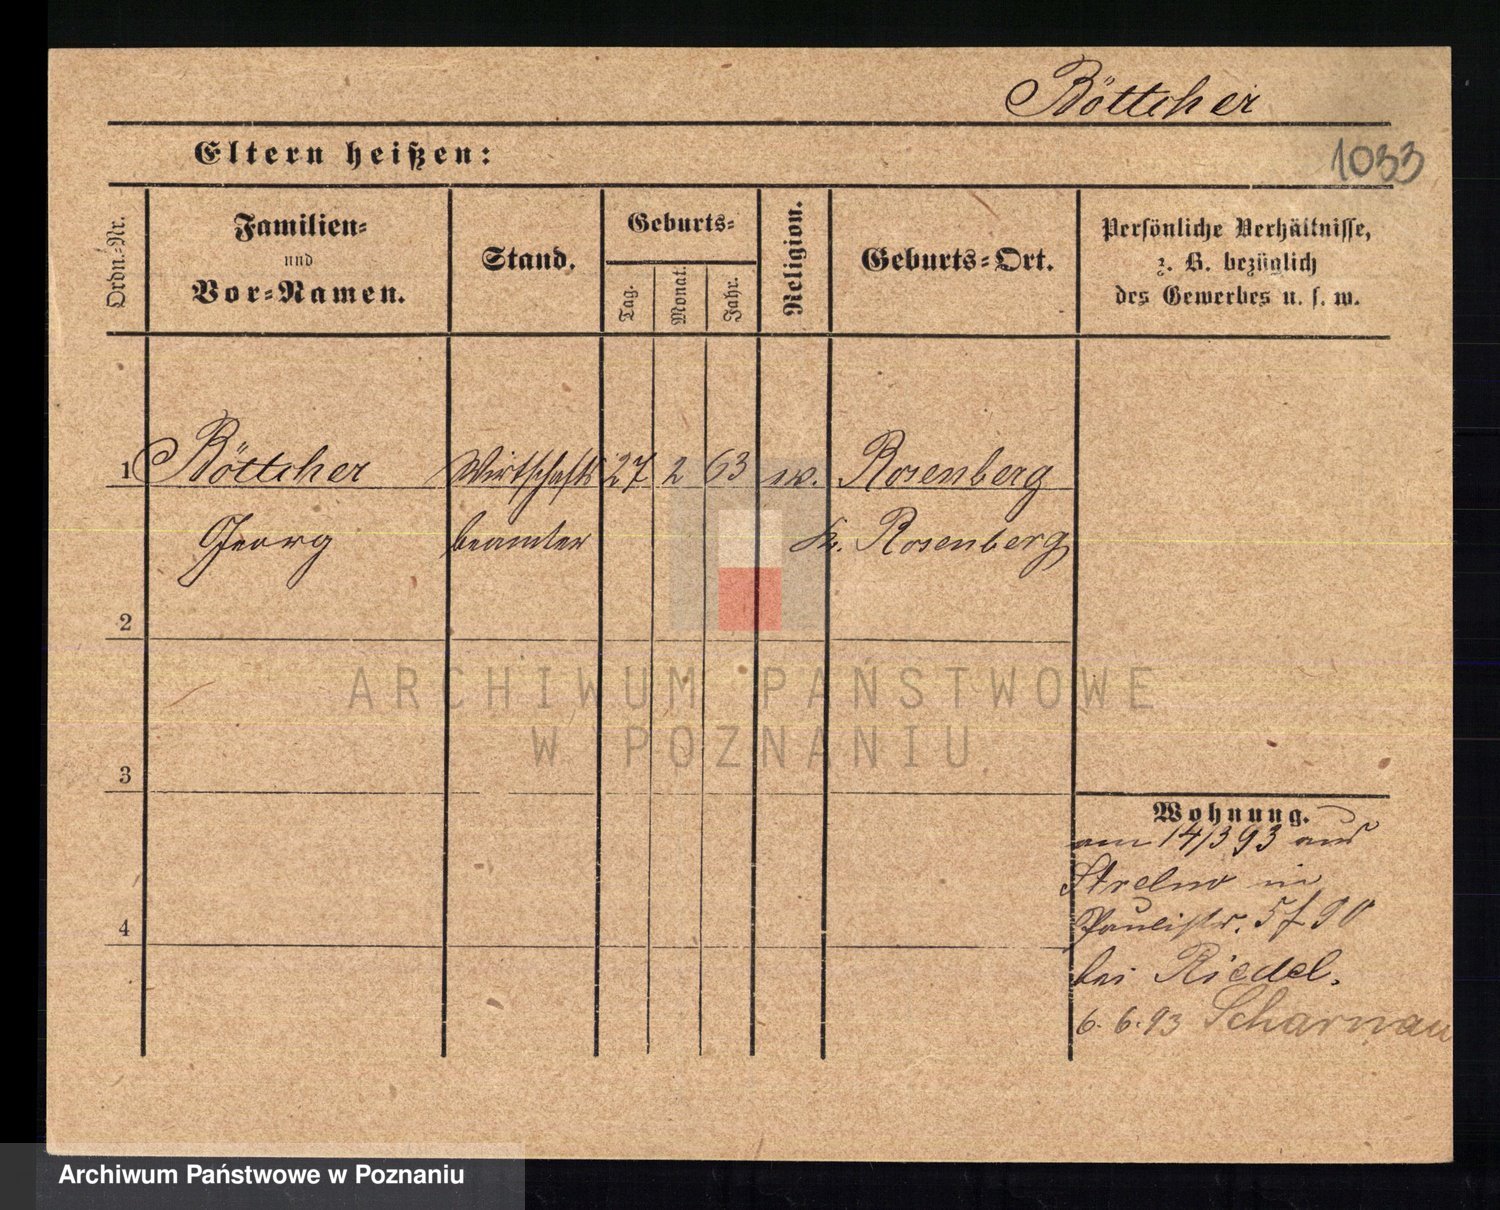 Böttcher
1033
Eltern heißen:
Ordn.-Nr.
Familien-
und
Vor-Namen.
Stand.
Geburts-
Tag.
Monat.
Jahr.
Religion.
Geburts-Ort.
Persönliche Verhältnisse,
z. B. bezüglich
des Gewerbes u. s. w.
1 Böttcher Wirtschafts 27 2 63 ev. Rosenberg
Georg beamter Kr. Rosenberg
2
3
4
Wohnung.
am 14/3 93 aus
Strelno in
Paulistr. 5 f 90
bei Riedel.
6. 6. 93 Scharnau
ARCHIWUM PAŃSTWOWE
W POZNANIU
Archiwum Państwowe w Poznaniu